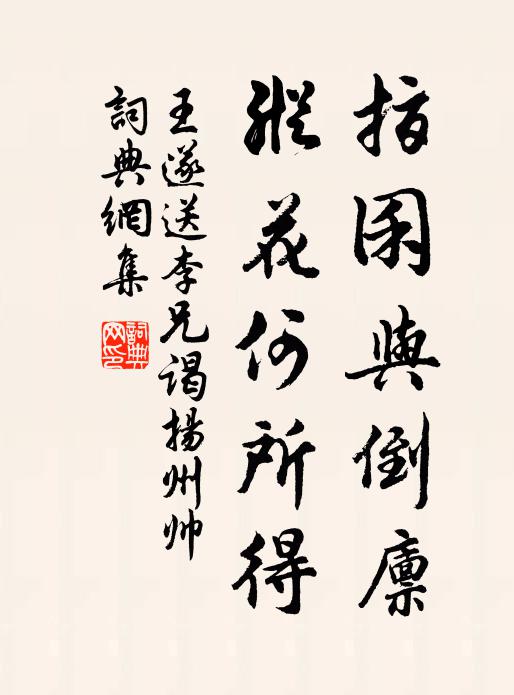 指囷與倒廪
縱花何所得
王遂送李兄謁揚州帅
詞典網集
詞典网印